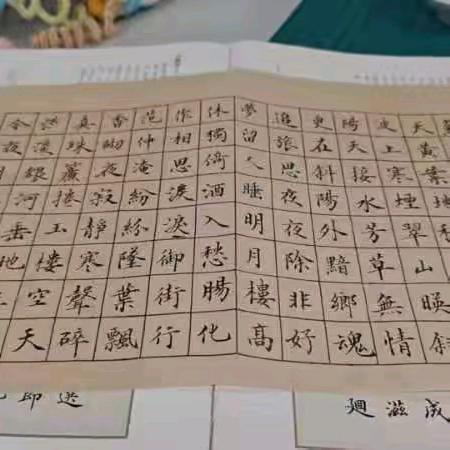 天黃葉地秋
波上寒煙翠山暎斜
陽天接水芳草無情
更在斜陽外黯鄉魂
追旅思夜夜除非好
夢留人睡明月樓高
休獨倚酒入愁腸化
作相思淚淚御街行
范仲淹紛紛墜葉飄
香砌夜寂靜寒聲碎
真珠簾捲玉樓空天
淡銀河垂地
令夜
迴滋成
即